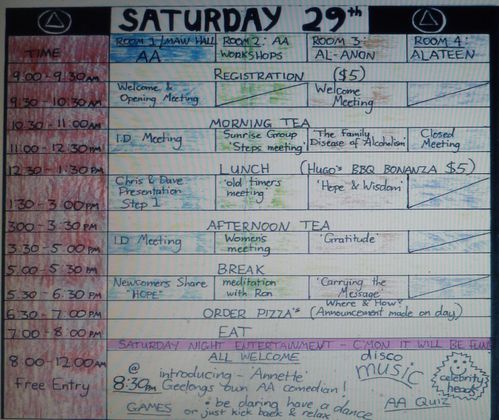 SATURDAY 29th
TIME
ROOM 1/MAW HALL
AA
ROOM 2: AA
WORKSHOPS
ROOM 3:
AL-ANON
ROOM 4:
ALATEEN
9.00 - 9.30AM
REGISTRATION ($5)
9.30 - 10.30AM
Welcome &
Opening Meeting
Welcome
Meeting
10.30 - 11.00AM
MORNING TEA
11.00 - 12.30PM
I.D Meeting
Sunrise Group
'Steps meeting'
'The Family
Disease of Alcoholism'
Closed
Meeting
12.30 - 1.30PM
LUNCH (HUGO'S BBQ BONANZA $5)
1.30 - 3.00PM
Chris & Dave
Presentation
Step 1
'old timers
meeting'
'Hope & Wisdom'
3.00 - 3.30PM
AFTERNOON TEA
3.30 - 5.00PM
I.D Meeting
Womens
meeting
'Gratitude'
5.00 - 5.30PM
BREAK
5.30 - 6.30PM
Newcomers Share
"HOPE"
meditation
with Ron
'Carrying the
Message'
6.30 - 7.00PM
ORDER PIZZA'S (Where & How?
Announcement made on day)
7.00 - 8.00PM
EAT
SATURDAY NIGHT ENTERTAINMENT - C'MON IT WILL BE FUN
8.00 - 12.00AM
Free Entry
ALL WELCOME
@
8:30pm
introducing - 'Annette'
Geelongs 'own AA comedian!
disco
MUSIC
celebrity
heads
'AA QUIZ
GAMES
• be daring have a dance
or just kick back & relax